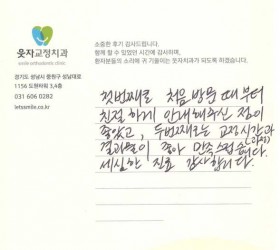 웃자교정치과
smile orthodontic clinic
경기도 성남시 중원구 성남대로
1156 도원타워 3,4층
031 606 0282
letssmile.co.kr
소중한 후기 감사드립니다.
함께 할 수 있었던 시간에 감사하며,
환자분들의 소리에 귀 기울이는 웃자치과가 되도록 하겠습니다.
첫번째로 처음 방문 때부터
친절하게 안내해주신 점이
좋았고, 두번째로는 교정시간과
결과들이 좋아 만족스럽습니다.
세심한 진료 감사합니다.